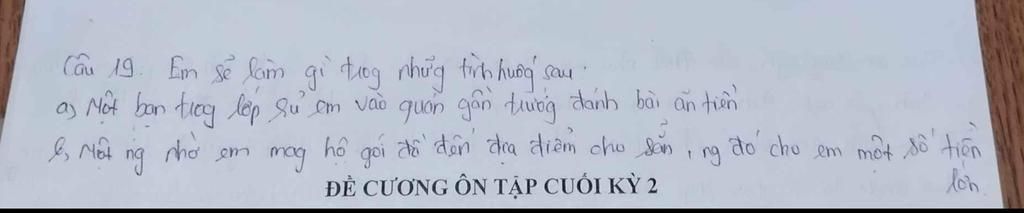 Câu 19. Em sẽ làm gì trog nhữg tìh huốg sau:
a, Một bạn trog lớp rủ em vào quán gần trườg đánh bài ăn tiền
b, Một ng nhờ em mag hộ gói đồ đến địa điểm cho sẵn, ng đó cho em một số tiền
lớn.
ĐỀ CƯƠNG ÔN TẬP CUỐI KỲ 2